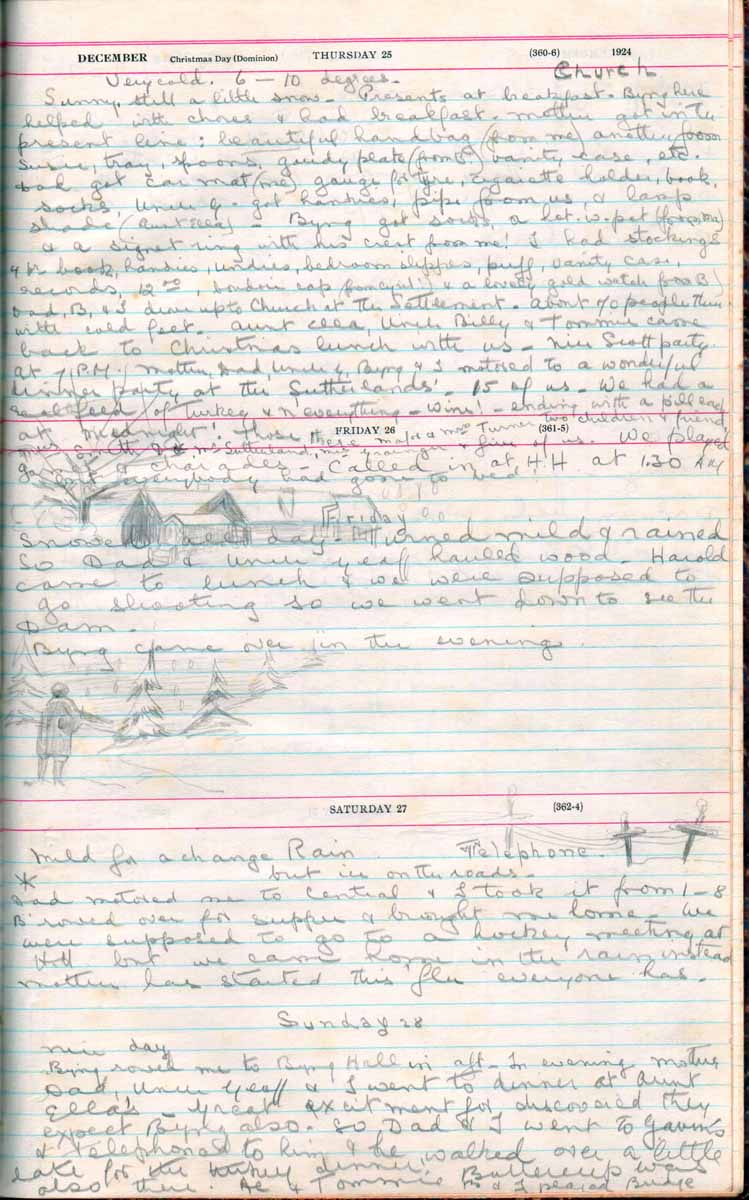 DECEMBER Christmas Day (Dominion) THURSDAY 25 (360-6) 1924
Very cold. 6 — 10 degrees. Church
Sunny, still a little snow. Presents at breakfast. Byng here
helped with chores & had breakfast. Mother got in the
present line: beautiful handbag (from me) another from
Susie, tray, spoons, gaudy plate (from B) vanity case, etc.
Dad got car mat (me) gauge for tyre, cigarette holder, book,
socks, Uncle G. got hankies, pipe from us, & lamp
shade (Aunt Ella) — Byng got socks, a hot-w-pot (from me)
& a signet ring with his crest from me! I had stockings
book, hankies, undies, bedroom slippers, puff, vanity case,
records, 12.00, boudoir cap & a lovely gold watch from B)
Dad, B, & I drove up to Church at the Settlement. About 70 people there
with cold feet. Aunt Ella, Uncle Billy & Tommie came
back to Christmas lunch with us — nice Scott party.
At 7 P.M. Mother, Dad, Uncle G, Byng & I motored to a wonderful
dinner party at the Sutherlands' — 15 of us — We had a
real feed of turkey & n'everything — wine! — ending with a
at midnight! Those there Major & Mrs Turner two children & friend,
FRIDAY 26 (361-5)
Mrs Smith, Mrs Sutherland, & five of us. We played
games & charades — Called in at H.H at 1.30 AM
but everybody had gone to bed!
Friday
Snowed all day — turned mild & rained
So Dad & Uncle Geoff hauled wood — Harold
came to lunch & we were supposed to
go shooting so we went down to see the
Dam.
Byng came over in the evening.
SATURDAY 27 (362-4)
Mild for a change Rain Telephone.
but ice on the roads.
* Dad motored me to Central & I took it from 1-8
B rowed over for supper & brought me home — We
were supposed to go to a hockey meeting at
Hill but we came home in the rain instead
Mother has started this flu everyone has.
Sunday 28
Nice day
Byng rowed me to Byng Hall in aft — In evening Mother
Dad, Uncle Geoff & I went to dinner at Aunt
Ella's — Great excitment for discovered they
expect Byng also. So Dad & I went to Gavin's
& telephoned to him & he walked over a little
late for the turkey dinner. Buttercup was
also there. He & Tommie & I played Bridge